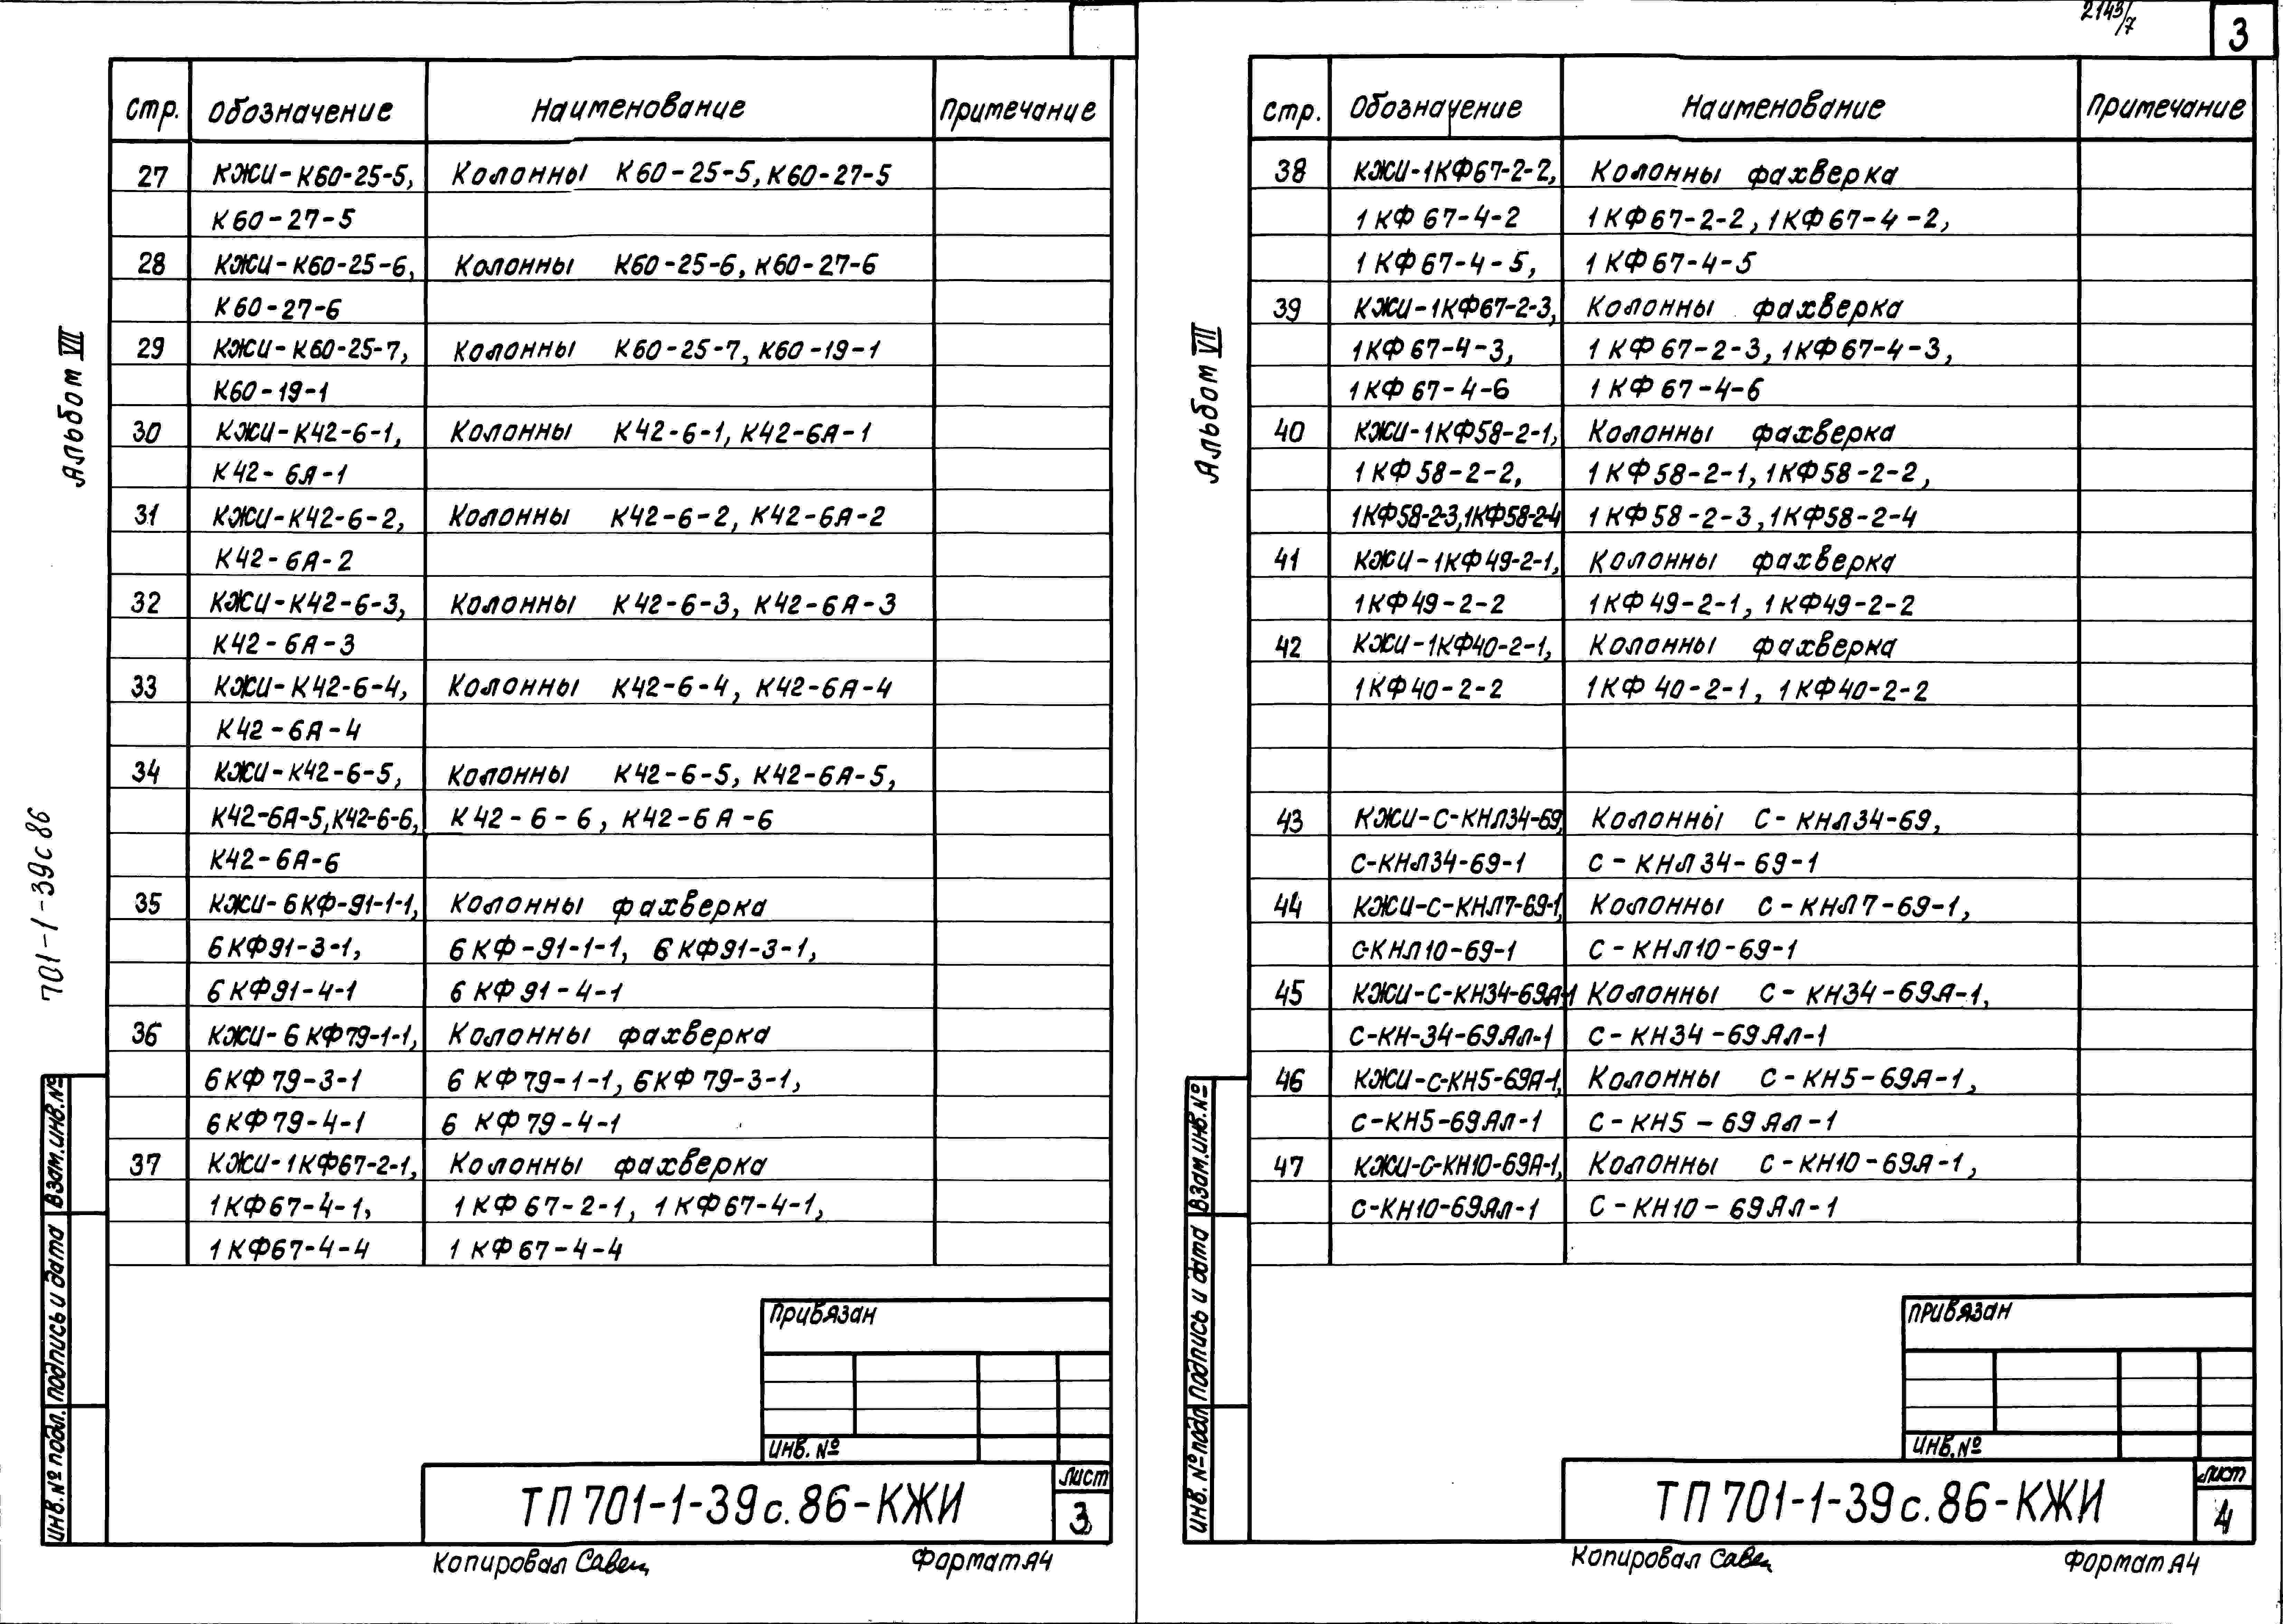 2143/7
3
Альбом VII
701-1-39с86
Стр. Обозначение Наименование Примечание
27 КЖИ-К60-25-5, Колонны К60-25-5, К60-27-5
К60-27-5
28 КЖИ-К60-25-6, Колонны К60-25-6, К60-27-6
К60-27-6
29 КЖИ-К60-25-7, Колонны К60-25-7, К60-19-1
К60-19-1
30 КЖИ-К42-6-1, Колонны К42-6-1, К42-6А-1
К42-6А-1
31 КЖИ-К42-6-2, Колонны К42-6-2, К42-6А-2
К42-6А-2
32 КЖИ-К42-6-3, Колонны К42-6-3, К42-6А-3
К42-6А-3
33 КЖИ-К42-6-4, Колонны К42-6-4, К42-6А-4
К42-6А-4
34 КЖИ-К42-6-5, Колонны К42-6-5, К42-6А-5,
К42-6А-5, К42-6-6, К42-6-6, К42-6А-6
К42-6А-6
35 КЖИ-6КФ-91-1-1, Колонны фахверка
6КФ91-3-1, 6КФ-91-1-1, 6КФ91-3-1,
6КФ91-4-1 6КФ91-4-1
36 КЖИ-6КФ79-1-1, Колонны фахверка
6КФ79-3-1 6КФ79-1-1, 6КФ79-3-1,
6КФ79-4-1 6КФ79-4-1
37 КЖИ-1КФ67-2-1, Колонны фахверка
1КФ67-4-1, 1КФ67-2-1, 1КФ67-4-1,
1КФ67-4-4 1КФ67-4-4
Взам.инв.№
Подпись и дата
Инв.№ подл.
Привязан
Инв.№
ТП 701-1-39с.86-КЖИ
Лист
3
Копировал Савец
Формат А4
Альбом VII
Стр. Обозначение Наименование Примечание
38 КЖИ-1КФ67-2-2, Колонны фахверка
1КФ67-4-2 1КФ67-2-2, 1КФ67-4-2,
1КФ67-4-5, 1КФ67-4-5
39 КЖИ-1КФ67-2-3, Колонны фахверка
1КФ67-4-3, 1КФ67-2-3, 1КФ67-4-3,
1КФ67-4-6 1КФ67-4-6
40 КЖИ-1КФ58-2-1, Колонны фахверка
1КФ58-2-2, 1КФ58-2-1, 1КФ58-2-2,
1КФ58-2-3, 1КФ58-2-4 1КФ58-2-3, 1КФ58-2-4
41 КЖИ-1КФ49-2-1, Колонны фахверка
1КФ49-2-2 1КФ49-2-1, 1КФ49-2-2
42 КЖИ-1КФ40-2-1, Колонны фахверка
1КФ40-2-2 1КФ40-2-1, 1КФ40-2-2
43 КЖИ-С-КНЛ34-69, Колонны С-КНЛ34-69,
С-КНЛ34-69-1 С-КНЛ34-69-1
44 КЖИ-С-КНЛ7-69-1, Колонны С-КНЛ7-69-1,
С-КНЛ10-69-1 С-КНЛ10-69-1
45 КЖИ-С-КН34-69А-1 Колонны С-КН34-69А-1,
С-КН-34-69Ал-1 С-КН34-69Ал-1
46 КЖИ-С-КН5-69А-1, Колонны С-КН5-69А-1,
С-КН5-69Ал-1 С-КН5-69Ал-1
47 КЖИ-С-КН10-69А-1, Колонны С-КН10-69А-1,
С-КН10-69Ал-1 С-КН10-69Ал-1
Взам.инв.№
Подпись и дата
Инв.№ подл
Привязан
Инв.№
ТП 701-1-39с.86-КЖИ
Лист
4
Копировал Савец
Формат А4